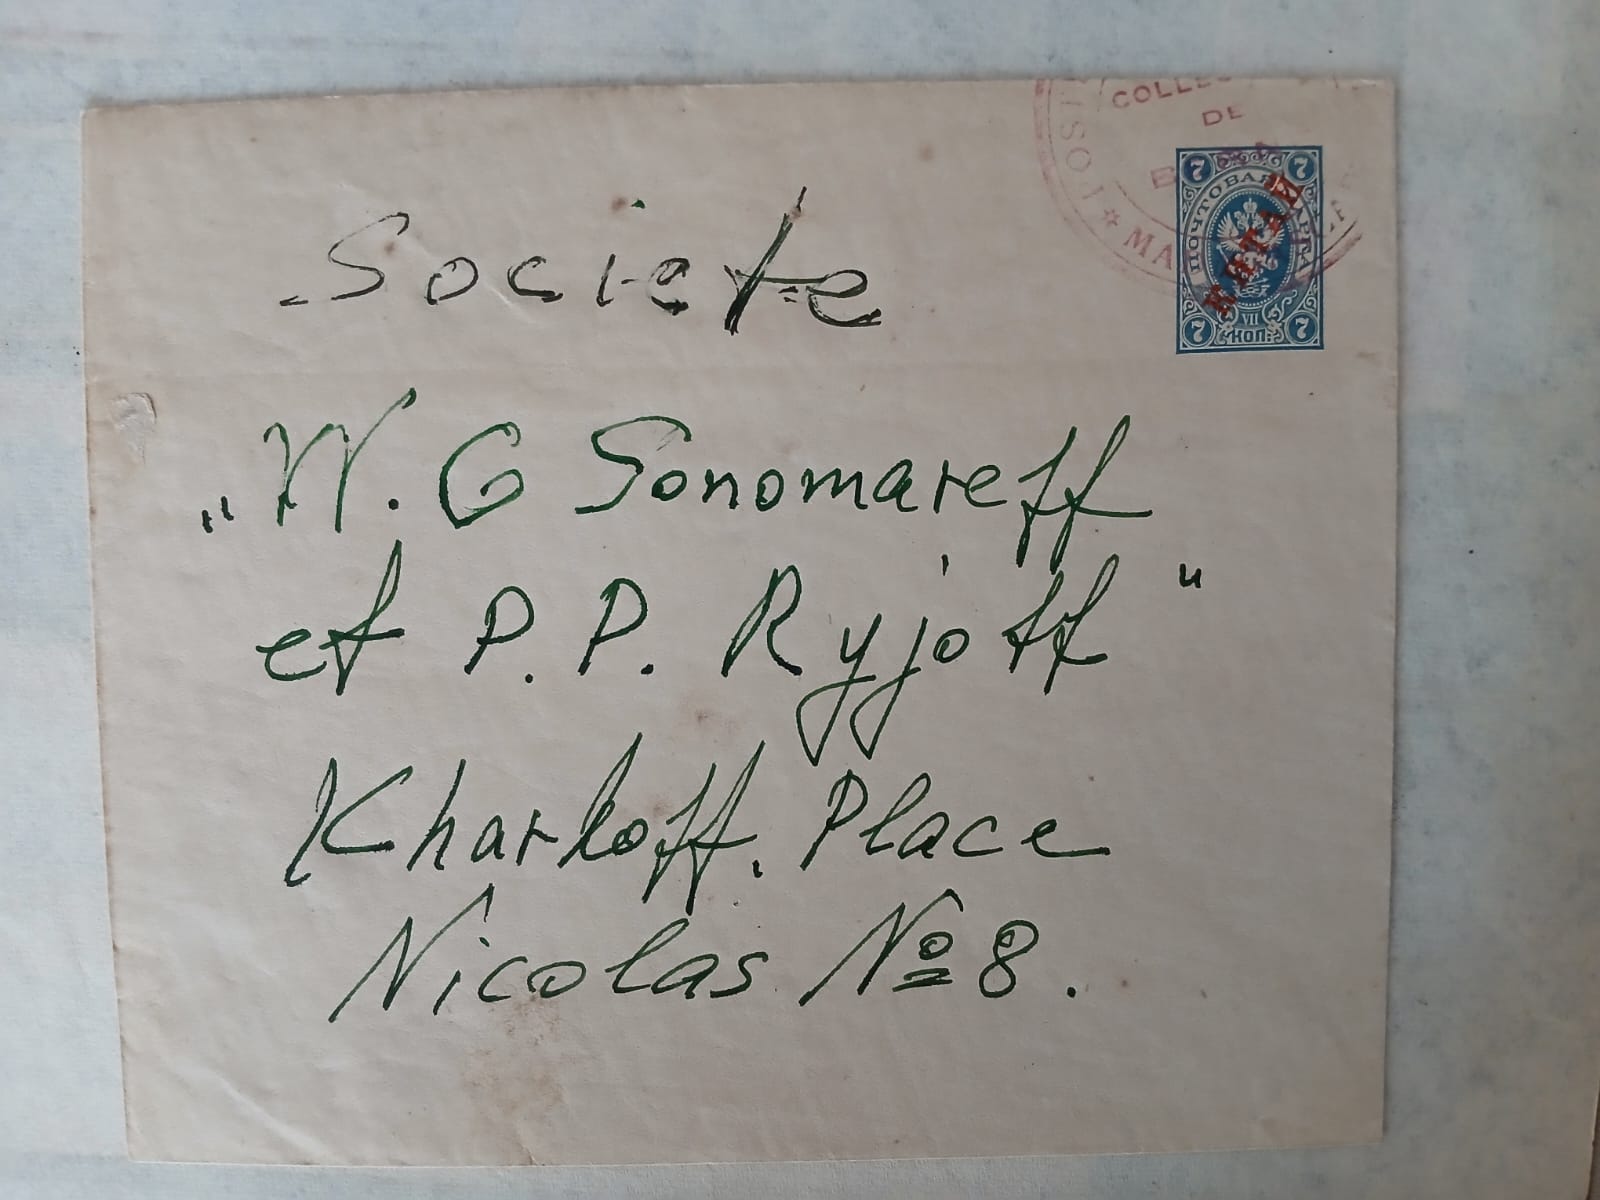 COLLE
DE
POSI
MA
7 7
ПОЧТОВАЯ МАРКА
КИТАЙ
VII
7 КОП. 7
Societe
„W. G Sonomareff
et P. P. Ryjoff"
Kharkoff. Place
Nicolas № 8.